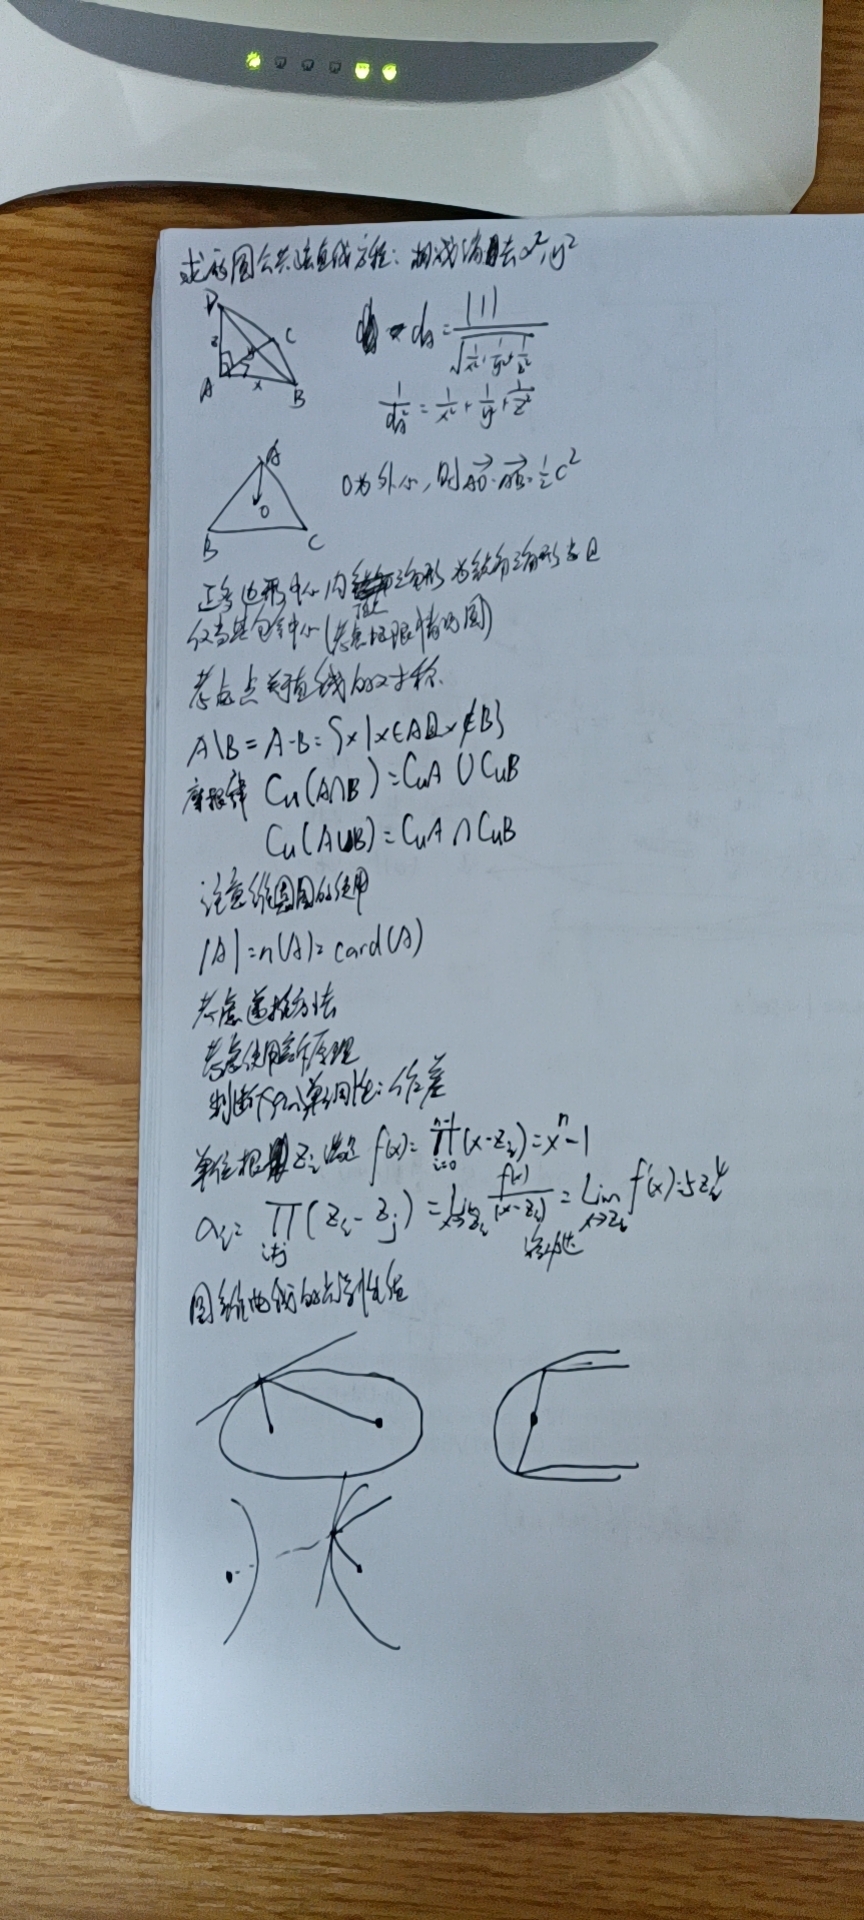 求两圆公共弦直线方程：相减消去x²,y²
D
z
y
C
A
x
B
d_A = |1| / √(1/x²+1/y²+1/z²)
1/d_A² = 1/x²+1/y²+1/z²
A
O
B
C
O为外心,则AO→·AB→=½c²
正多边形中心内 三角形为锐角三角形当且
仅当其包含中心(考虑极限情况圆)
考虑点关于直线的对称.
A\B = A-B = {x|x∈A且x∉B}
摩根律 C_U(A∩B)=C_UA∪C_UB
C_U(A∪B)=C_UA∩C_UB
注意维恩图的使用
|A|=n(A)=card(A)
考虑递推方法
考虑使用容斥原理
判断 单调性:作差
单位根 z_i 满足 f(x)=∏_{i=0}^{n-1}(x-z_i)=x^n-1
a_i=∏_{i≠j}(z_i-z_j)=Lim_{x→z_i} f(x)/(x-z_i)=Lim_{x→z_i} f'(x)=5z_i^4
洛必达
圆锥曲线的光学性质